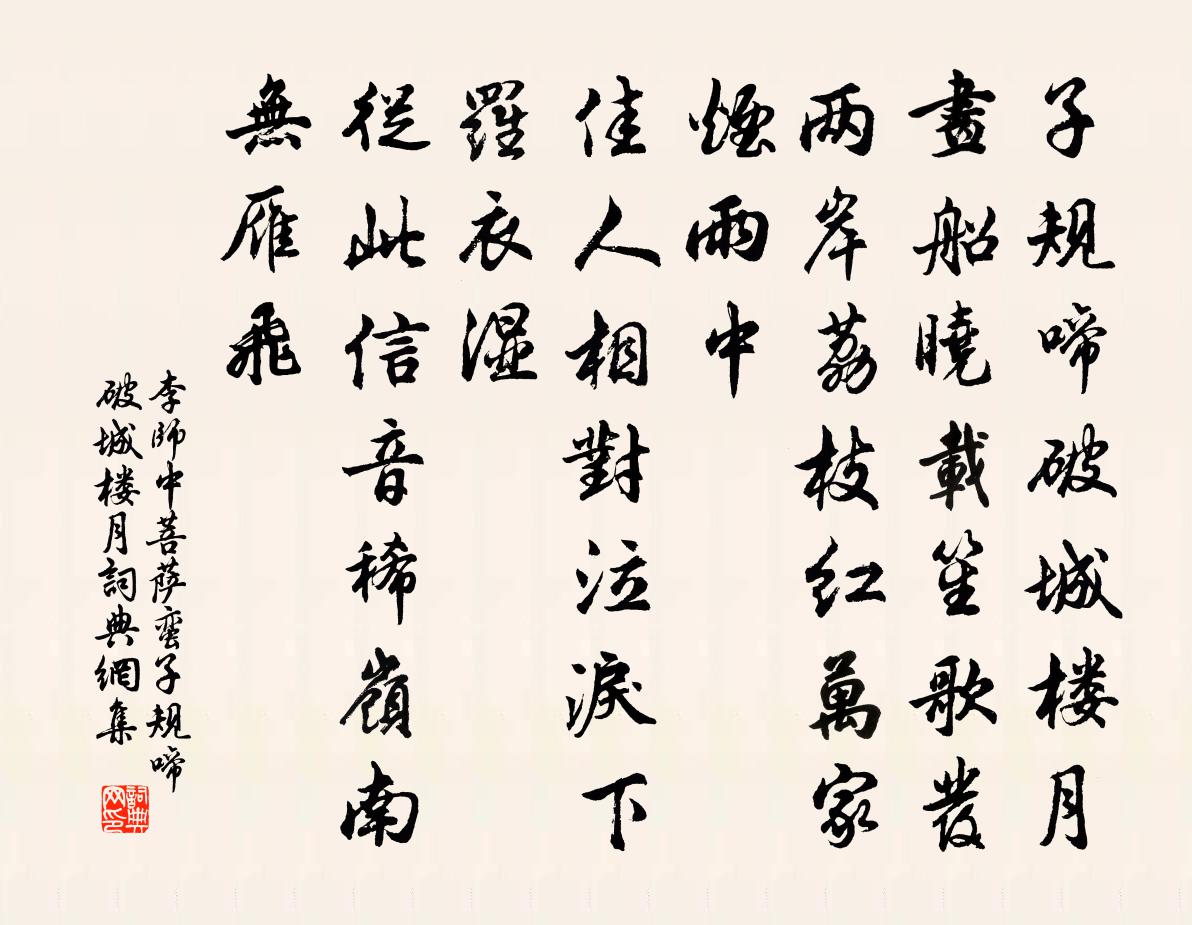 子規啼破城楼月
畫船曉載笙歌發
两岸荔枝红萬家
煙雨中
佳人相對泣淚下
羅衣濕
從此信音稀嶺南
無雁飛
李師中菩萨蛮子規啼
破城楼月詞典網集
詞典网印